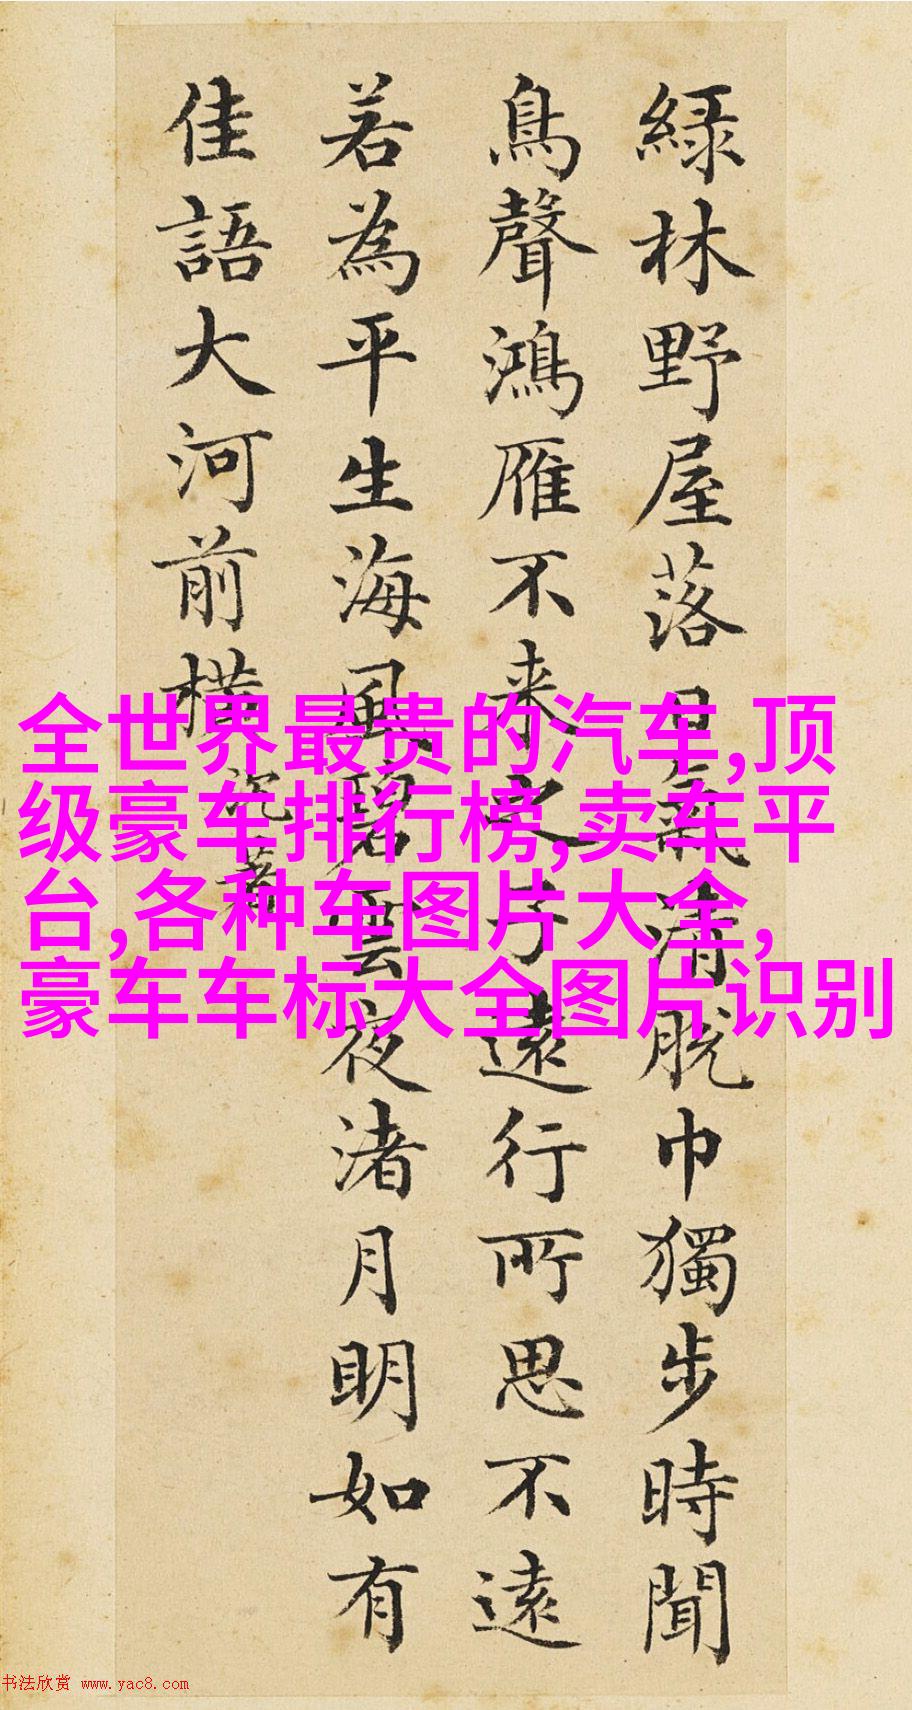 綠林野屋落日氣清脫巾獨步時聞
鳥聲鴻雁不来之子遠行所思不遠
若為平生海風碧雲夜渚月明如有
佳語大河前橫
沈荃
全世界最贵的汽车,顶
级豪车排行榜,卖车平
台,各种车图片大全,
豪车车标大全图片识别
书法欣赏 www.yac8.com